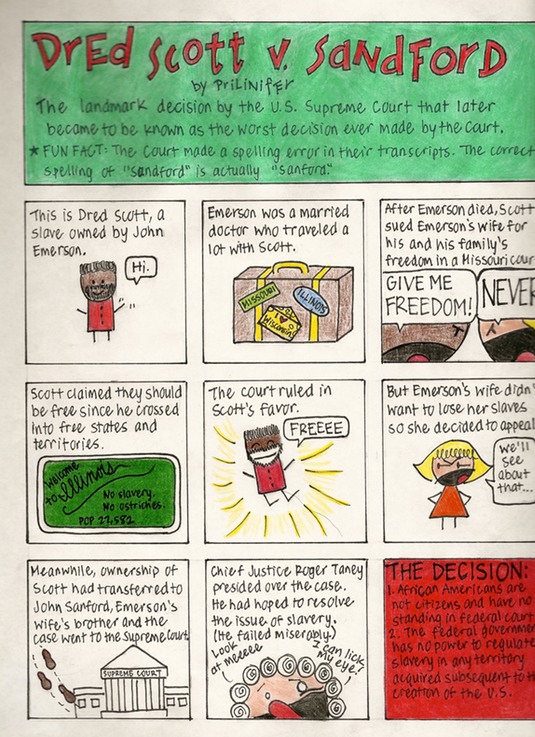 DrEd Scott v. SandFord
by PriLiNifer
The landmark decision by the U.S. Supreme Court that later
became to be known as the worst decision ever made by the Court.
* FUN FACT: The Court made a spelling error in their transcripts. The correct
spelling of "Sandford" is actually "Sanford."
This is Dred Scott, a
slave owned by John
Emerson.
Hi.
Emerson was a married
doctor who traveled a
lot with Scott.
MISSOURI
ILLINOIS
I
Wisconsin
After Emerson died, Scott
sued Emerson's wife for
his and his family's
freedom in a Missouri cour
GIVE ME
FREEDOM!
NEVER
Scott claimed they should
be free since he crossed
into free states and
territories.
Welcome
to Illinois
No slavery.
No ostriches.
POP 27,582
The court ruled in
Scott's favor.
FREEEE
But Emerson's wife didn'
want to lose her slaves
so she decided to appeal
we'll
see
about
that...
Meanwhile, ownership of
Scott had transferred to
John Sanford, Emerson's
wife's brother and the
case went to the Supreme Court.
SUPREME COURT
Chief Justice Roger Taney
presided over the case.
He had hoped to resolve
the issue of slavery.
(He failed miserably.)
Look
at meeeee
I can lick
my eye!
THE DECISION:
1. African Americans are
not citizens and have no
standing in federal court
2. The federal governmen
has no power to regulate
slavery in any territory
acquired subsequent to th
creation of the U.S.